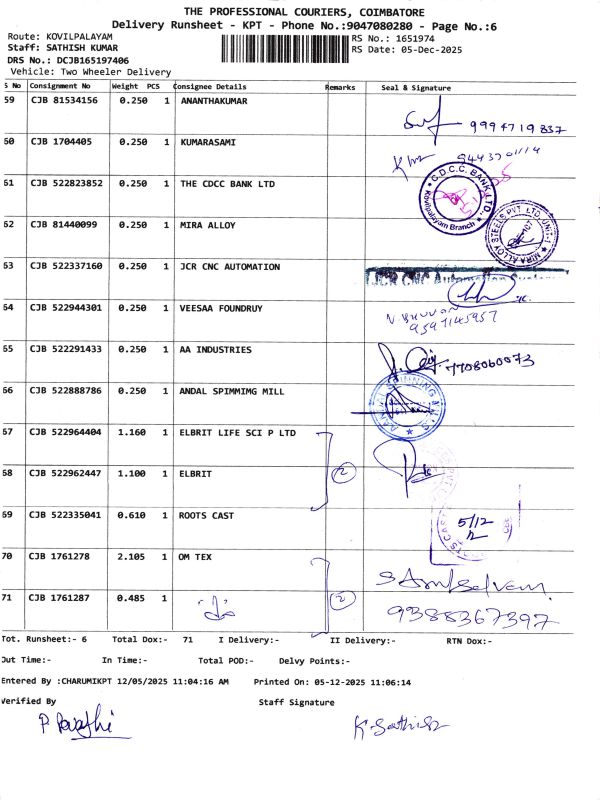 THE PROFESSIONAL COURIERS, COIMBATORE
Delivery Runsheet - KPT - Phone No.:9047080280 - Page No.:6
Route: KOVILPALAYAM RS No.: 1651974
Staff: SATHISH KUMAR RS Date: 05-Dec-2025
DRS No.: DCJB165197406
Vehicle: Two Wheeler Delivery
S No Consignment No Weight PCS Consignee Details Remarks Seal & Signature
59 CJB 81534156 0.250 1 ANANTHAKUMAR
9994719837
60 CJB 1704405 0.250 1 KUMARASAMI
61 CJB 522823852 0.250 1 THE CDCC BANK LTD
C.D.C.C. BANK LTD. Kovilpalayam Branch
62 CJB 81440099 0.250 1 MIRA ALLOY
MIRA ALLOY STEELS PVT. LTD. UNIT-1
63 CJB 522337160 0.250 1 JCR CNC AUTOMATION
JCR CNC Automation
64 CJB 522944301 0.250 1 VEESAA FOUNDRUY
9597145957
65 CJB 522291433 0.250 1 AA INDUSTRIES
7708060073
66 CJB 522888786 0.250 1 ANDAL SPIMMIMG MILL
67 CJB 522964404 1.160 1 ELBRIT LIFE SCI P LTD
68 CJB 522962447 1.100 1 ELBRIT 2
69 CJB 522335041 0.610 1 ROOTS CAST
5/12
70 CJB 1761278 2.105 1 OM TEX
S Arulselvam
71 CJB 1761287 0.485 1 2
9388367397
Tot. Runsheet:- 6 Total Dox:- 71 I Delivery:- II Delivery:- RTN Dox:-
Out Time:- In Time:- Total POD:- Delvy Points:-
Entered By :CHARUMIKPT 12/05/2025 11:04:16 AM Printed On: 05-12-2025 11:06:14
Verified By Staff Signature
K. Sathish